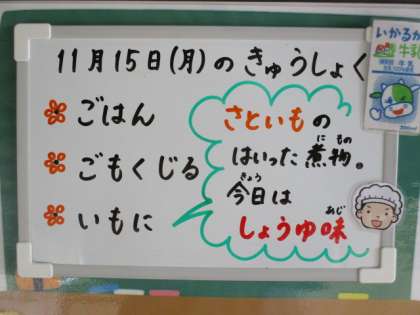 11月15日(月)の きゅうしょく
ごはん
ごもくじる
いもに
さといもの
はいった煮物。
にもの
今日は
きょう
しょうゆ味
あじ
いかるが
牛乳